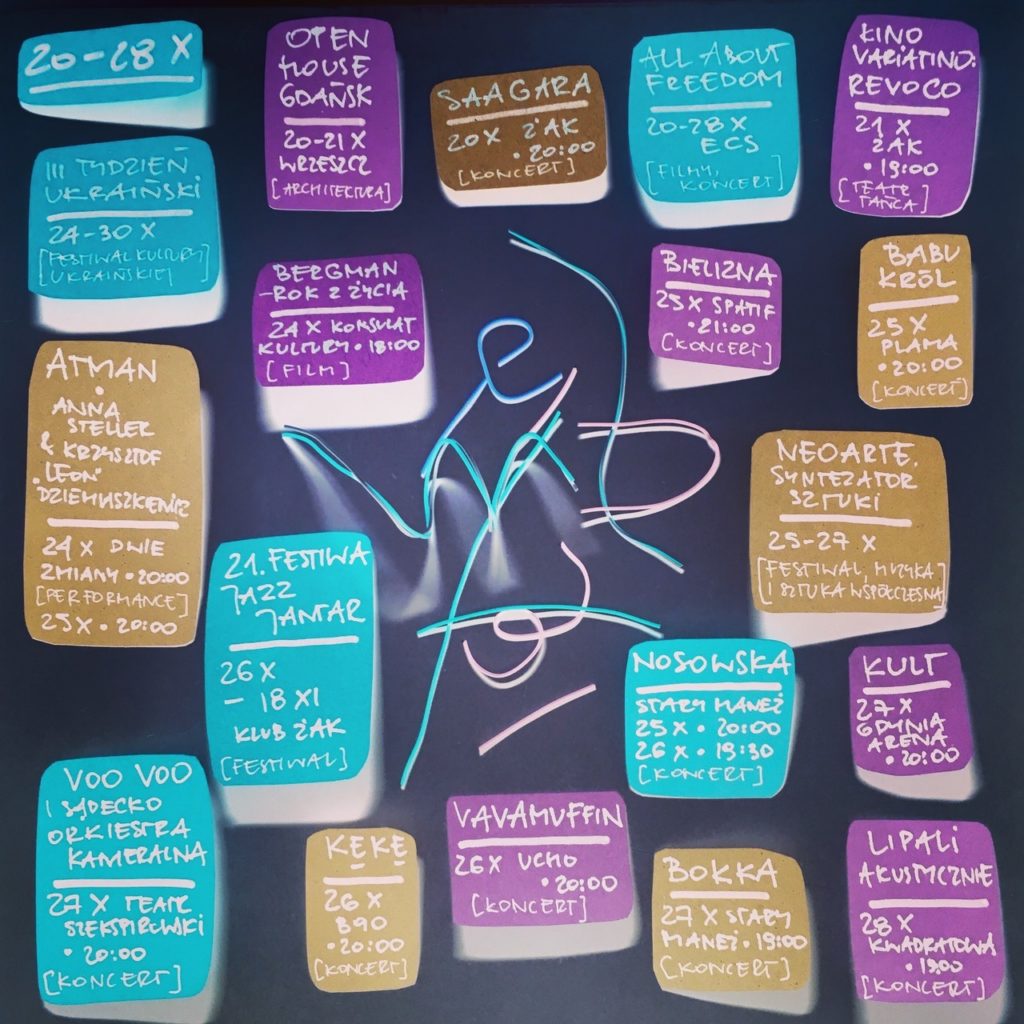 20-28 X
OPEN
HOUSE
GDAŃSK
20-21 X
WRZESZCZ
[ARCHITECTURA]
SAAGARA
20 X ŻAK
• 20:00
[KONCERT]
ALL ABOUT
FREEDOM
20-28 X
ECS
[FILMY,
KONCERT]
KINO
VARIATINO:
REVOCO
21 X
ŻAK
• 19:00
[TEATR
TAŃCA]
III TYDZIEŃ
UKRAIŃSKI
24-30 X
[FESTIWAL KULTURY
UKRAIŃSKIEJ]
BERGMAN
-ROK Z ŻYCIA
24 X KONSULAT
KULTURY • 18:00
[FILM]
BIELIZNA
25 X SPATIF
• 21:00
[KONCERT]
BABU
KRÓL
25 X
PLAMA
• 20:00
[KONCERT]
ATMAN
•
ANNA
STELLER
& KRZYSZTOF
"LEON"
DZIEMASZKIEWICZ
24 X DWIE
ZMIANY • 20:00
[PERFORMANCE]
25 X • 20:00
NEOARTE.
SYNTEZATOR
SZTUKI
25-27 X
[FESTIWAL, MUZYKA
I SZTUKA WSPÓŁCZESNA]
21. FESTIWAL
JAZZ
JANTAR
26 X
- 18 XI
KLUB ŻAK
[FESTIWAL]
NOSOWSKA
STARY MANEŻ
25 X • 20:00
26 X • 19:30
[KONCERT]
KULT
27 X
GDYNIA
ARENA
• 20:00
VOO VOO
I SĄDECKO
ORKIESTRA
KAMERALNA
27 X TEATR
SZEKSPIROWSKI
• 20:00
[KONCERT]
KĘKĘ
26 X
B90
• 20:00
[KONCERT]
VAVAMUFFIN
26 X UCHO
• 20:00
[KONCERT]
BOKKA
27 X STARY
MANEŻ • 19:00
[KONCERT]
LIPALI
AKUSTYCZNIE
28 X
KWADRATOWA
• 19:00
[KONCERT]